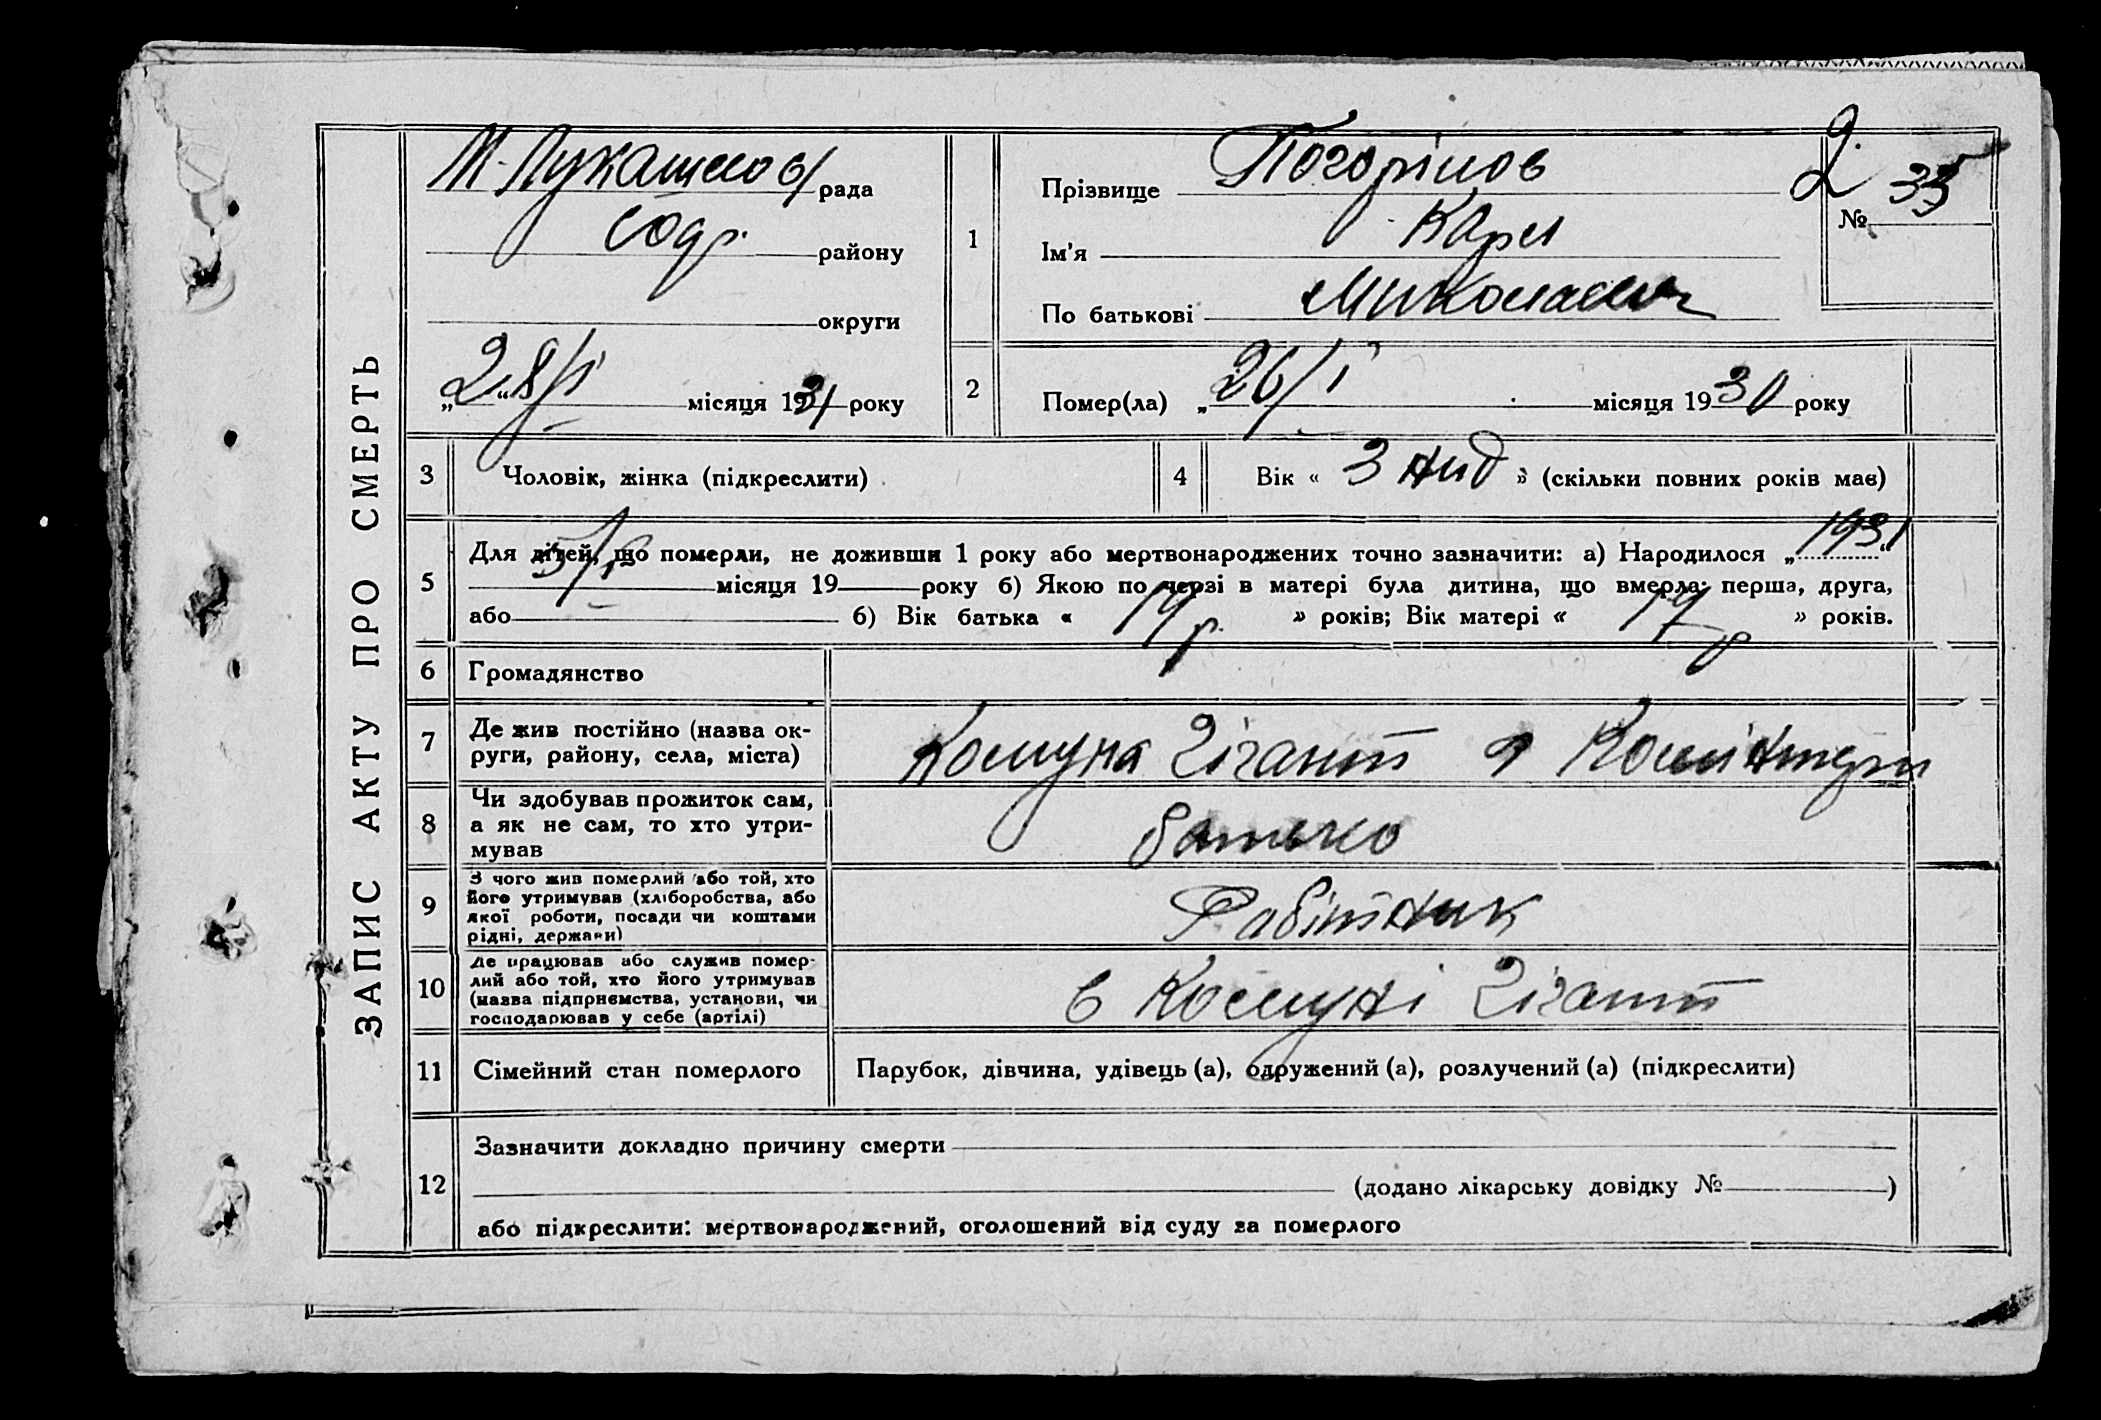 ЗАПИС АКТУ ПРО СМЕРТЬ
М-Лукашов/ рада
Солр. району
округи
„28/I“ місяця 1931 року
1
Прізвище Погорілов
Ім'я Карл
По батькові Миколаєвич
2
№ 35
2 Помер(ла) „26/I місяця 1930 року
3 Чоловік, жінка (підкреслити)
4 Вік « 3 нид » (скільки повних років має)
5 Для дітей, що померли, не доживши 1 року або мертвонароджених точно зазначити: а) Народилося „1931“
5/I місяця 19 року б) Якою по черзі в матері була дитина, що вмерла: перша, друга,
або б) Вік батька « 19 р. » років; Вік матері « 19 р » років.
6 Громадянство
7 Де жив постійно (назва ок-
руги, району, села, міста)
Комуна Гігант
8 Чи здобував прожиток сам,
а як не сам, то хто утри-
мував
батько
9 З чого жив померлий або той, хто
його утримував (хліборобства, або
якої роботи, посади чи коштами
рідні, держави)
Робітник
10 Де працював або служив помер-
лий або той, хто його утримував
(назва підприємства, установи, чи
господарював у себе (артілі)
в Комуні Гігант
11 Сімейний стан померлого
Парубок, дівчина, удівець (а), одружений (а), розлучений (а) (підкреслити)
12 Зазначити докладно причину смерти
(додано лікарську довідку № )
або підкреслити: мертвонароджений, оголошений від суду за померлого